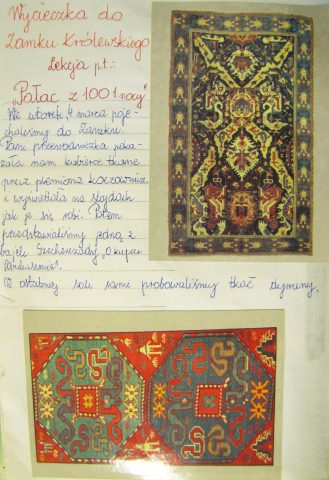 Wycieczka do
Zamku Królewskiego
Lekcja pt.:
"Pałac z 1001 nocy"
We wtorek, 4 marca poje-
chaliśmy do Zamku.
Pani przewodniczka poka-
zała nam kobierce tkane
przez plemiona koczownicze
i wyświetlała na slajdach
jak je się robi. Potem
przedstawialiśmy jedną z
bajek Szeherezady „O kupcu
W ostatniej sali sami próbowaliśmy tkać dywany.